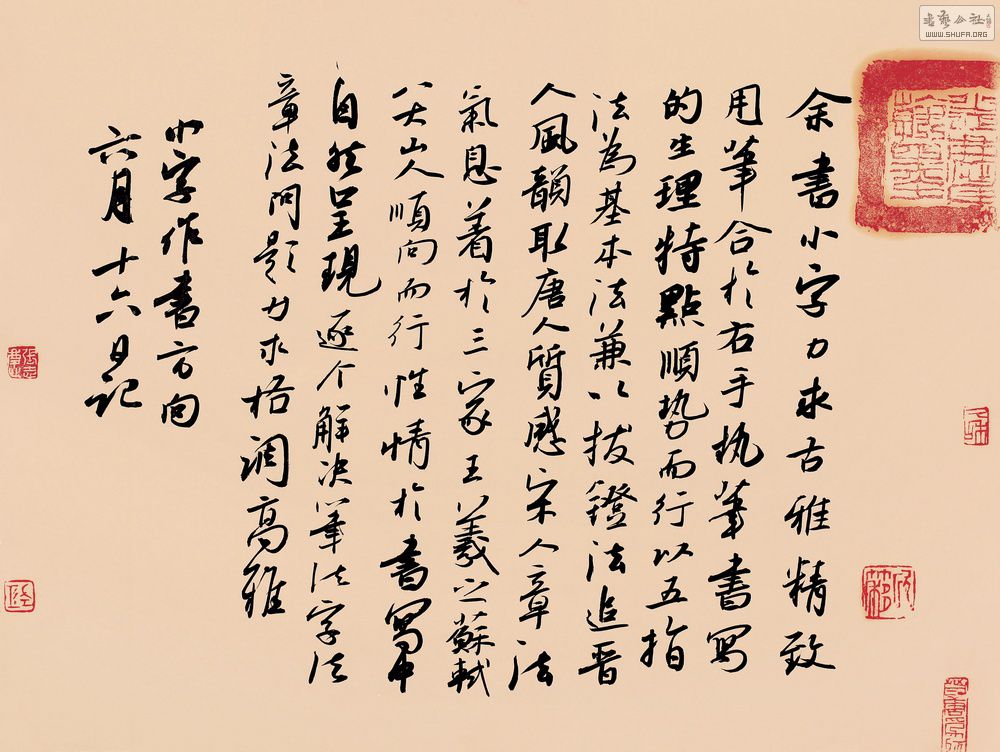 余書小字力求古雅精致
用筆合於右手執筆書寫
的生理特點順势而行以五指
法為基本法兼以拔鐙法追晋
人風韻取唐人質感宋人章法
氣息着於三家王羲之蘇軾
八大山人順向而行性情於書寫中
自然呈現逐个解決筆法字法
章法問題力求格調高雅
小字作書方向
六月十六日記
WWW.SHUFA.ORG